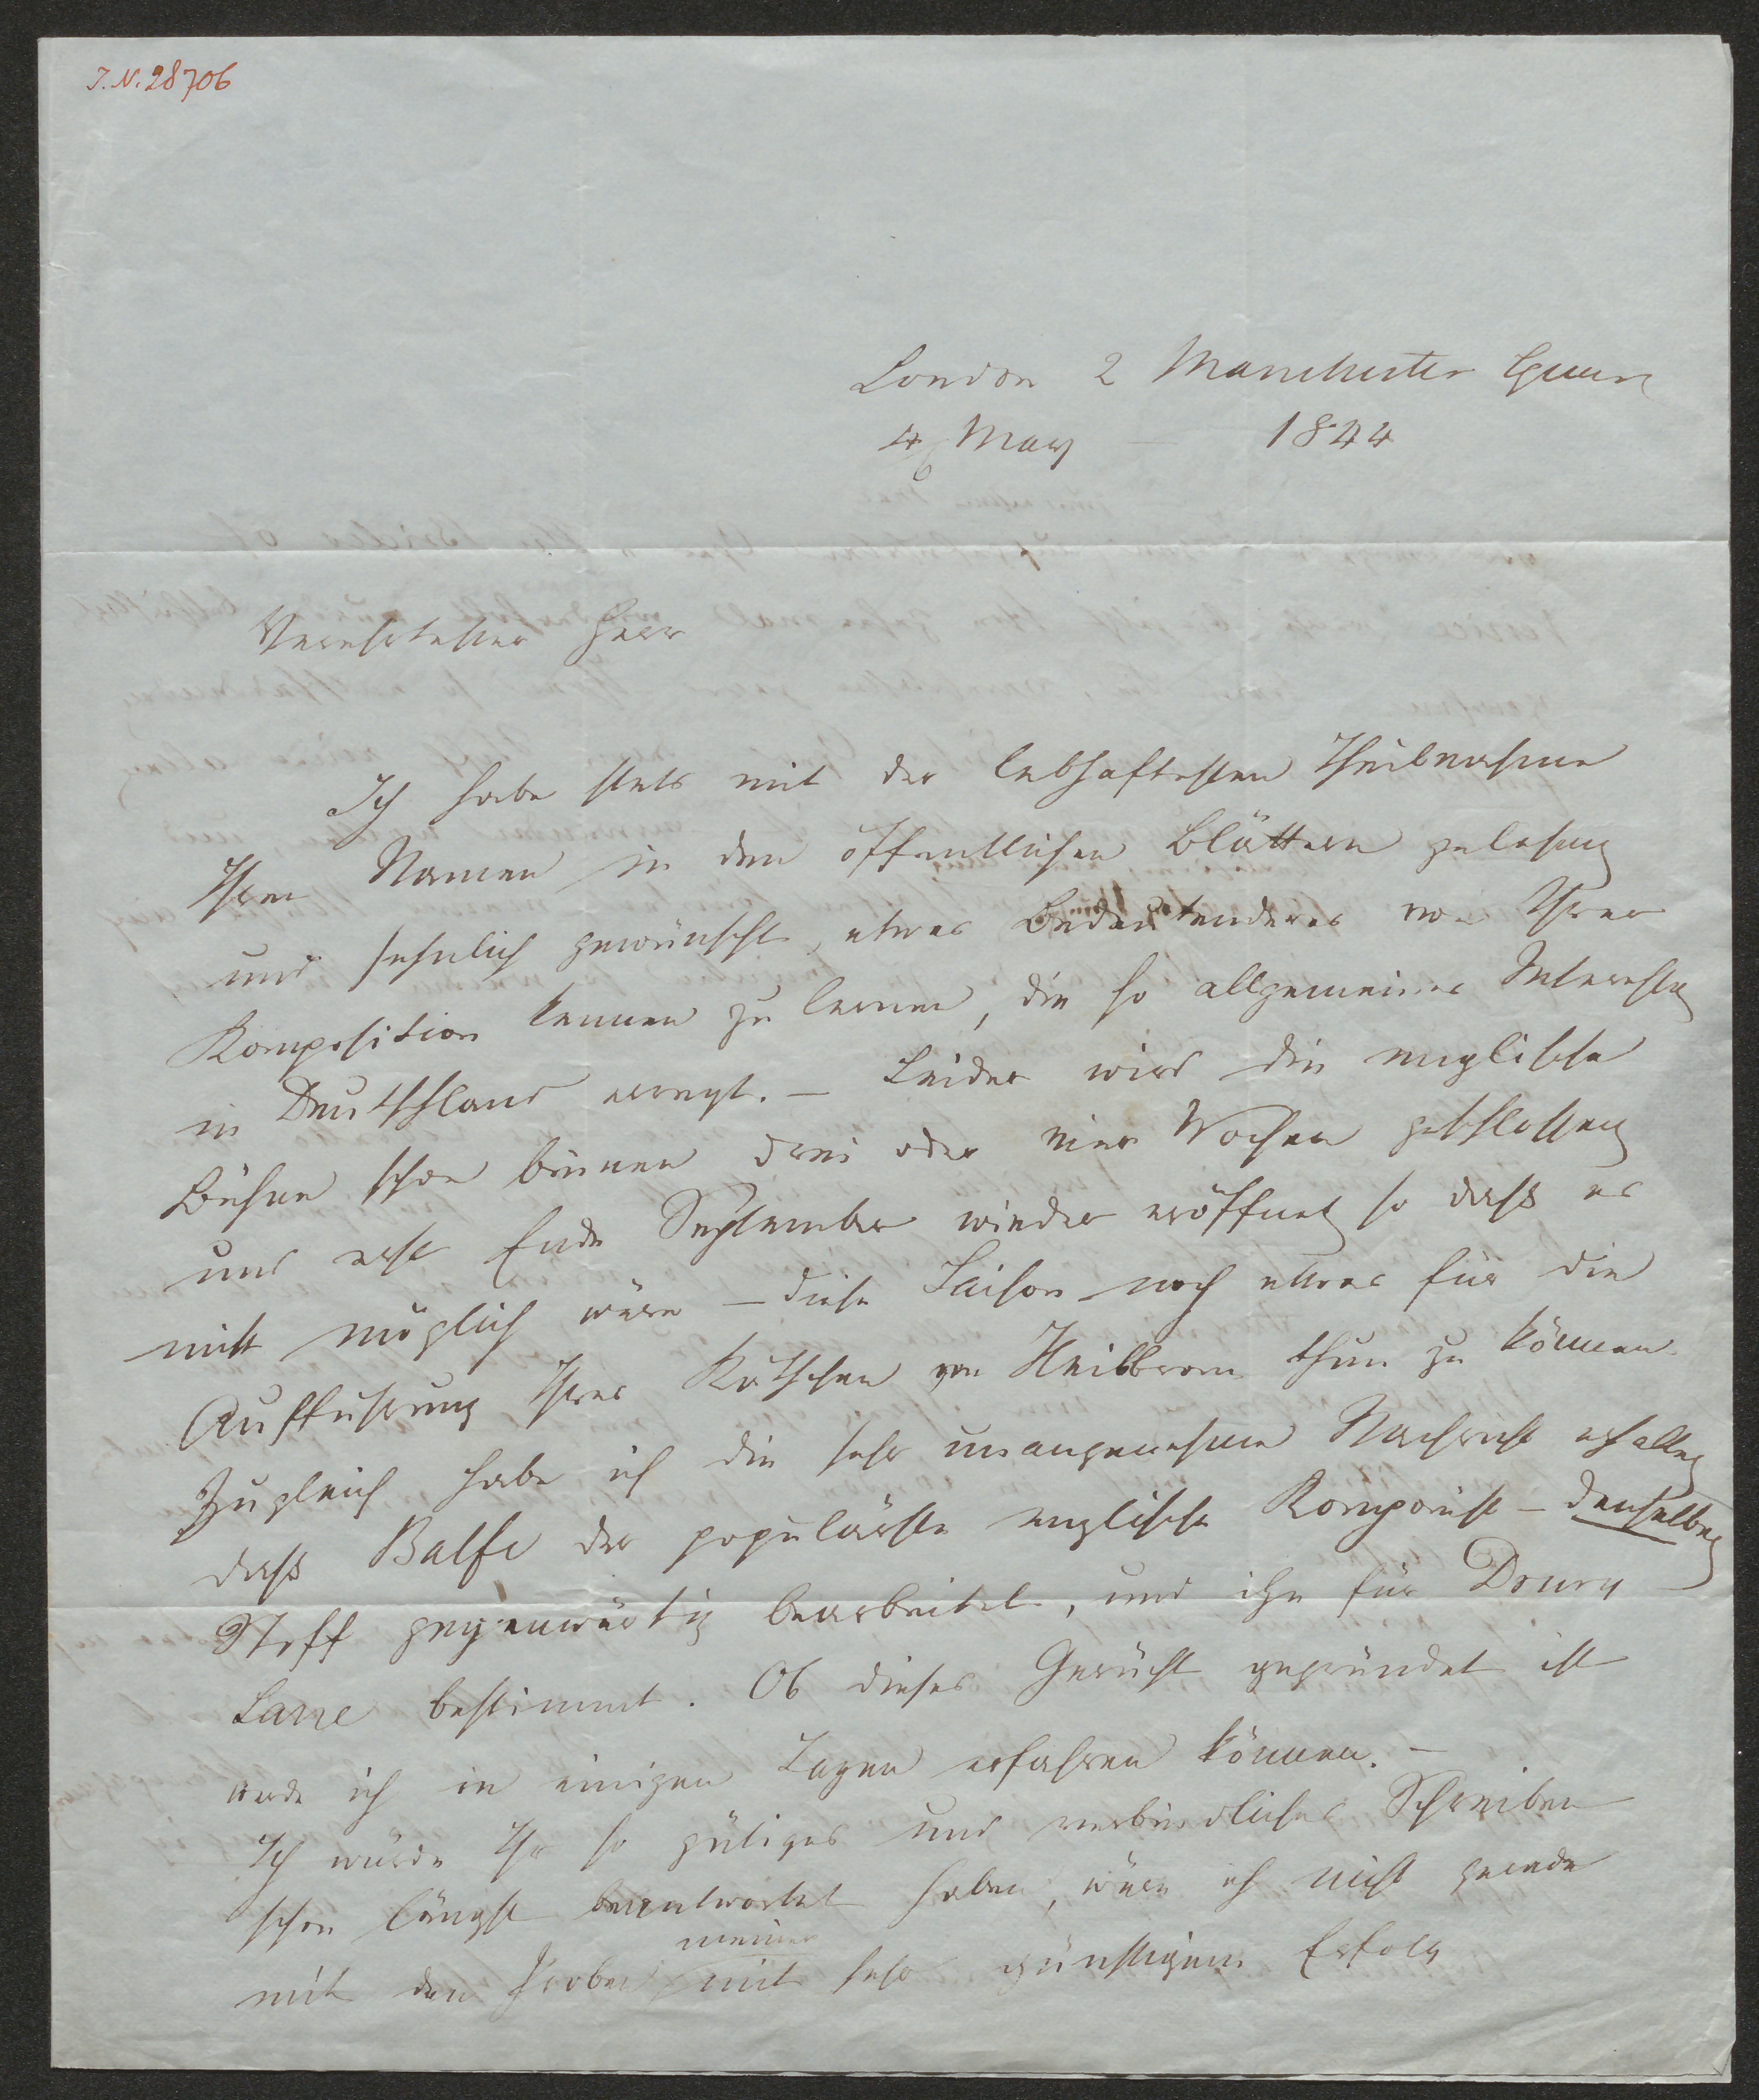 I. N. 28706
London 2 Manchester Square
4 May — 1844
Verehrtester Herr
Ich habe stets mit der lebhaftesten Theilnahme
Ihren Namen in den öffentlichen Blättern gelesen
und sehnlich gewünscht, etwas Bedeutenderes von Ihrer
Komposition kennen zu lernen, die so allgemeines Interesse
in Deutschland erregt. — Leider wird die englische
Bühne schon binnen drei oder vier Wochen geschlossen
und erst Ende September wieder eröffnet so daß es
nicht möglich wäre — diese Saison noch etwas für die
Aufführung Ihres Käthchen von Heilbronn thun zu können
Zugleich habe ich die sehr unangenehme Nachricht erhalten
daß Balfe der populärste englische Komponist — denselben
Stoff gegenwärtig bearbeitet, und ihn für Drury
Lane bestimmt. Ob dieses Gerücht gegründet ist
werde ich in einigen Tagen erfahren können. —
Ich würde Ihr so gütiges und verbindliches Schreiben
schon längst beantwortet haben, wäre ich nicht gerade
meiner
mit den Proben mit sehr günstigem Erfolg